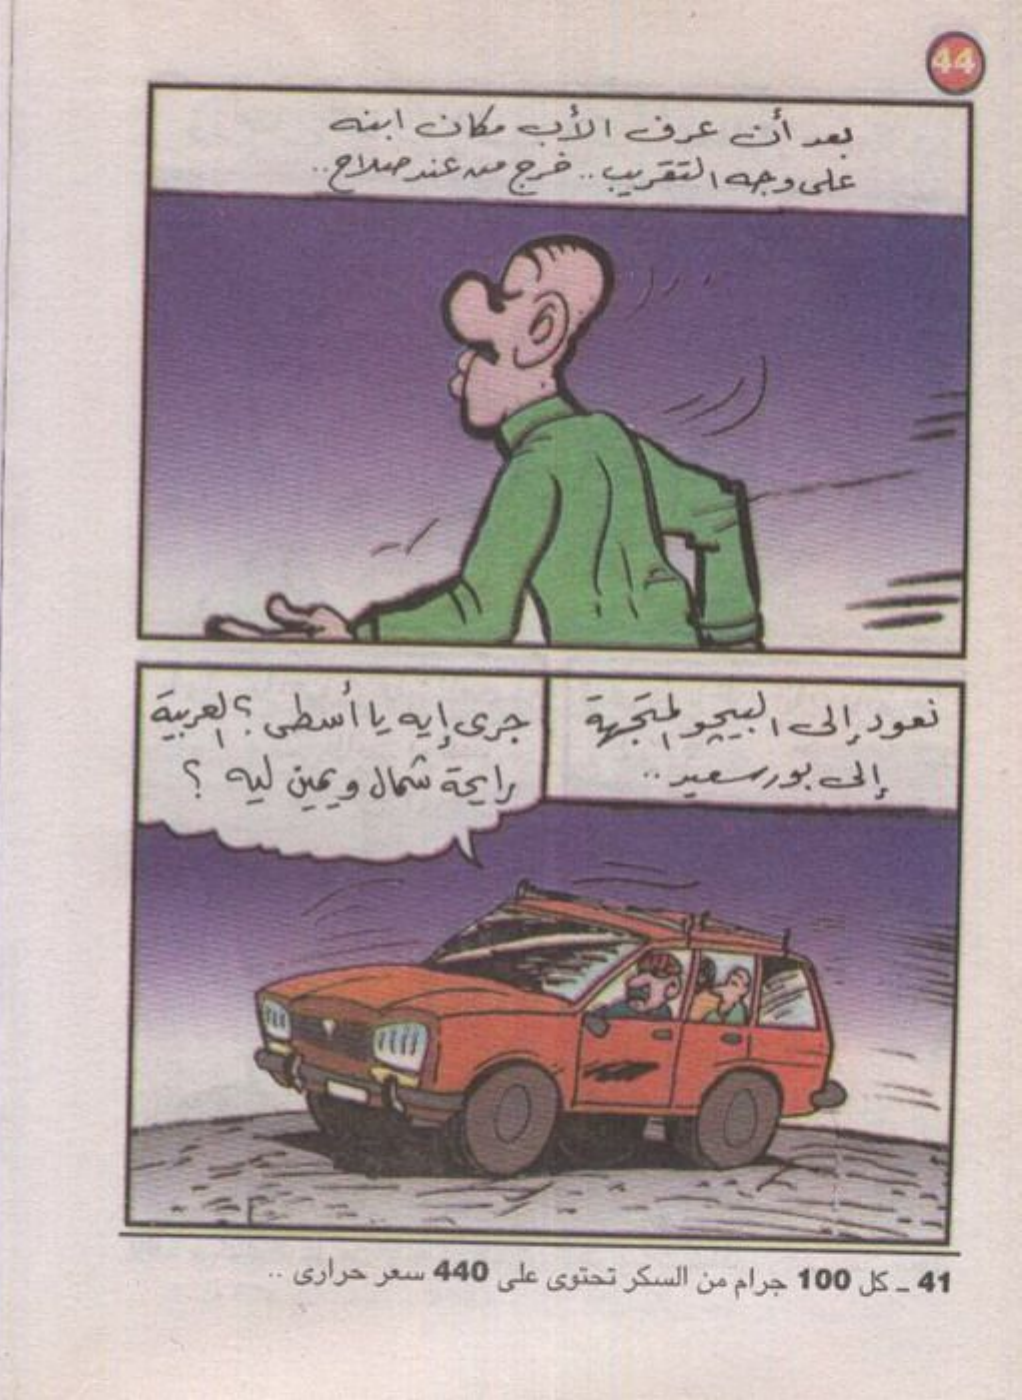 44
بعد أن عرف الأب مكان ابنه
على وجه التقريب.. خرج من عند صلاح..
نعود إلى البيچو المتجهة
إلى بورسعيد..
جرى إيه يا أسطى؟ العربية
رايحة شمال ويمين ليه؟
41 ـ كل 100 جرام من السكر تحتوى على 440 سعر حرارى ..